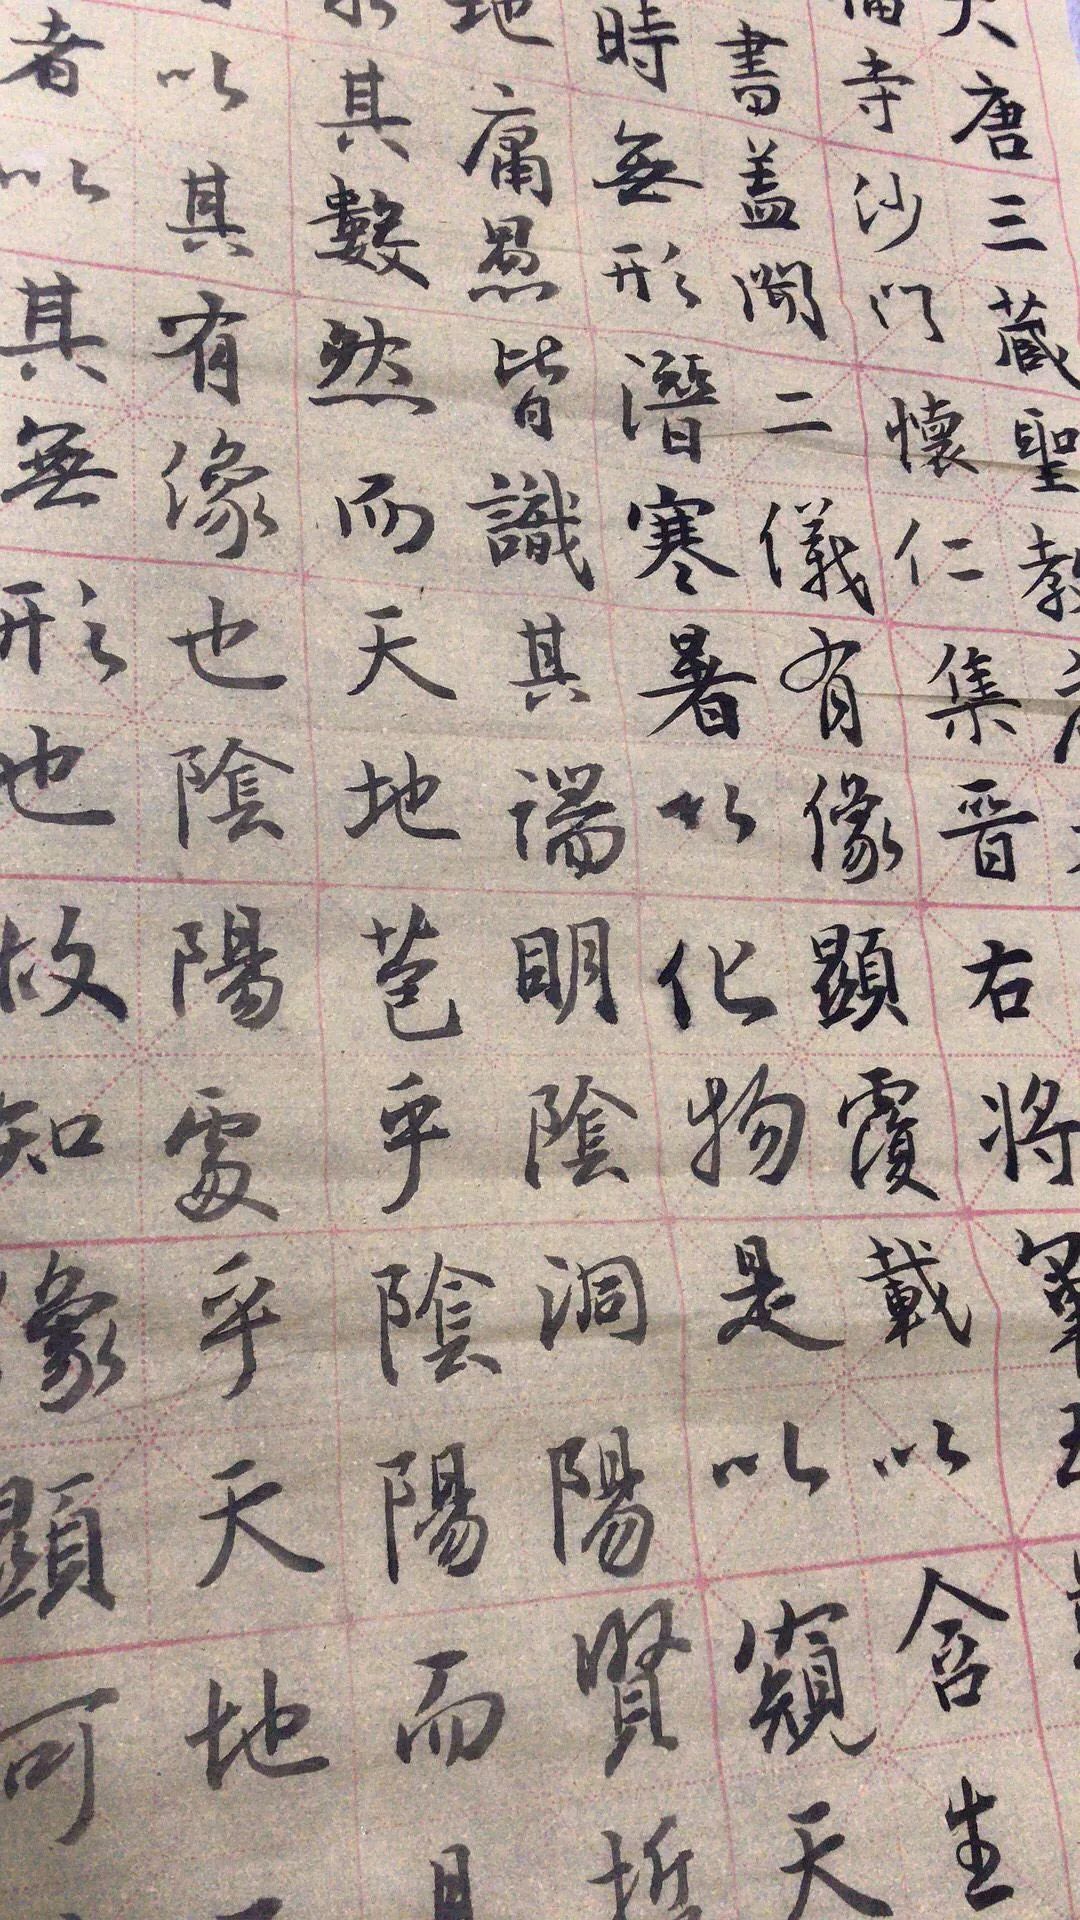 大唐三藏聖教序
福寺沙門懷仁集晉右將軍王
書蓋聞二儀有像顯覆載以含生
時無形潛寒暑以化物是以窺天
地庸愚皆識其端明陰洞陽賢哲
其數然而天地苞乎陰陽而
以其有像也陰陽處乎天地
者以其無形也故知像顯可